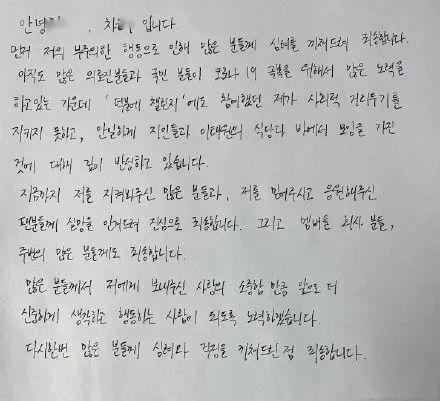 안녕 , 차 입니다.
먼저 저의 부주의한 행동으로 인해 많은 분들께 심려를 끼쳐드려 죄송합니다.
아직도 많은 의료진분들과 국민 분들이 코로나 19 극복을 위해서 많은 노력을
하고있는 가운데 '덕분에 챌린지'에도 참여했던 제가 사회적 거리두기를
지키지 못하고, 안일하게 지인들과 이태원의 식당과 바에서 모임을 가진
것에 대해 깊이 반성하고 있습니다.
지금까지 저를 지켜봐주신 많은 분들과, 저를 믿어주시고 응원해주신
팬분들께 실망을 안겨드려 진심으로 죄송합니다. 그리고 멤버들 회사 분들,
주변의 많은 분들께도 죄송합니다.
많은 분들께서 저에게 보내주신 사랑의 소중함 만큼 앞으로 더
신중하게 생각하고 행동하는 사람이 되도록 노력하겠습니다.
다시한번 많은 분들께 심려와 걱정을 끼쳐드린 점 죄송합니다.